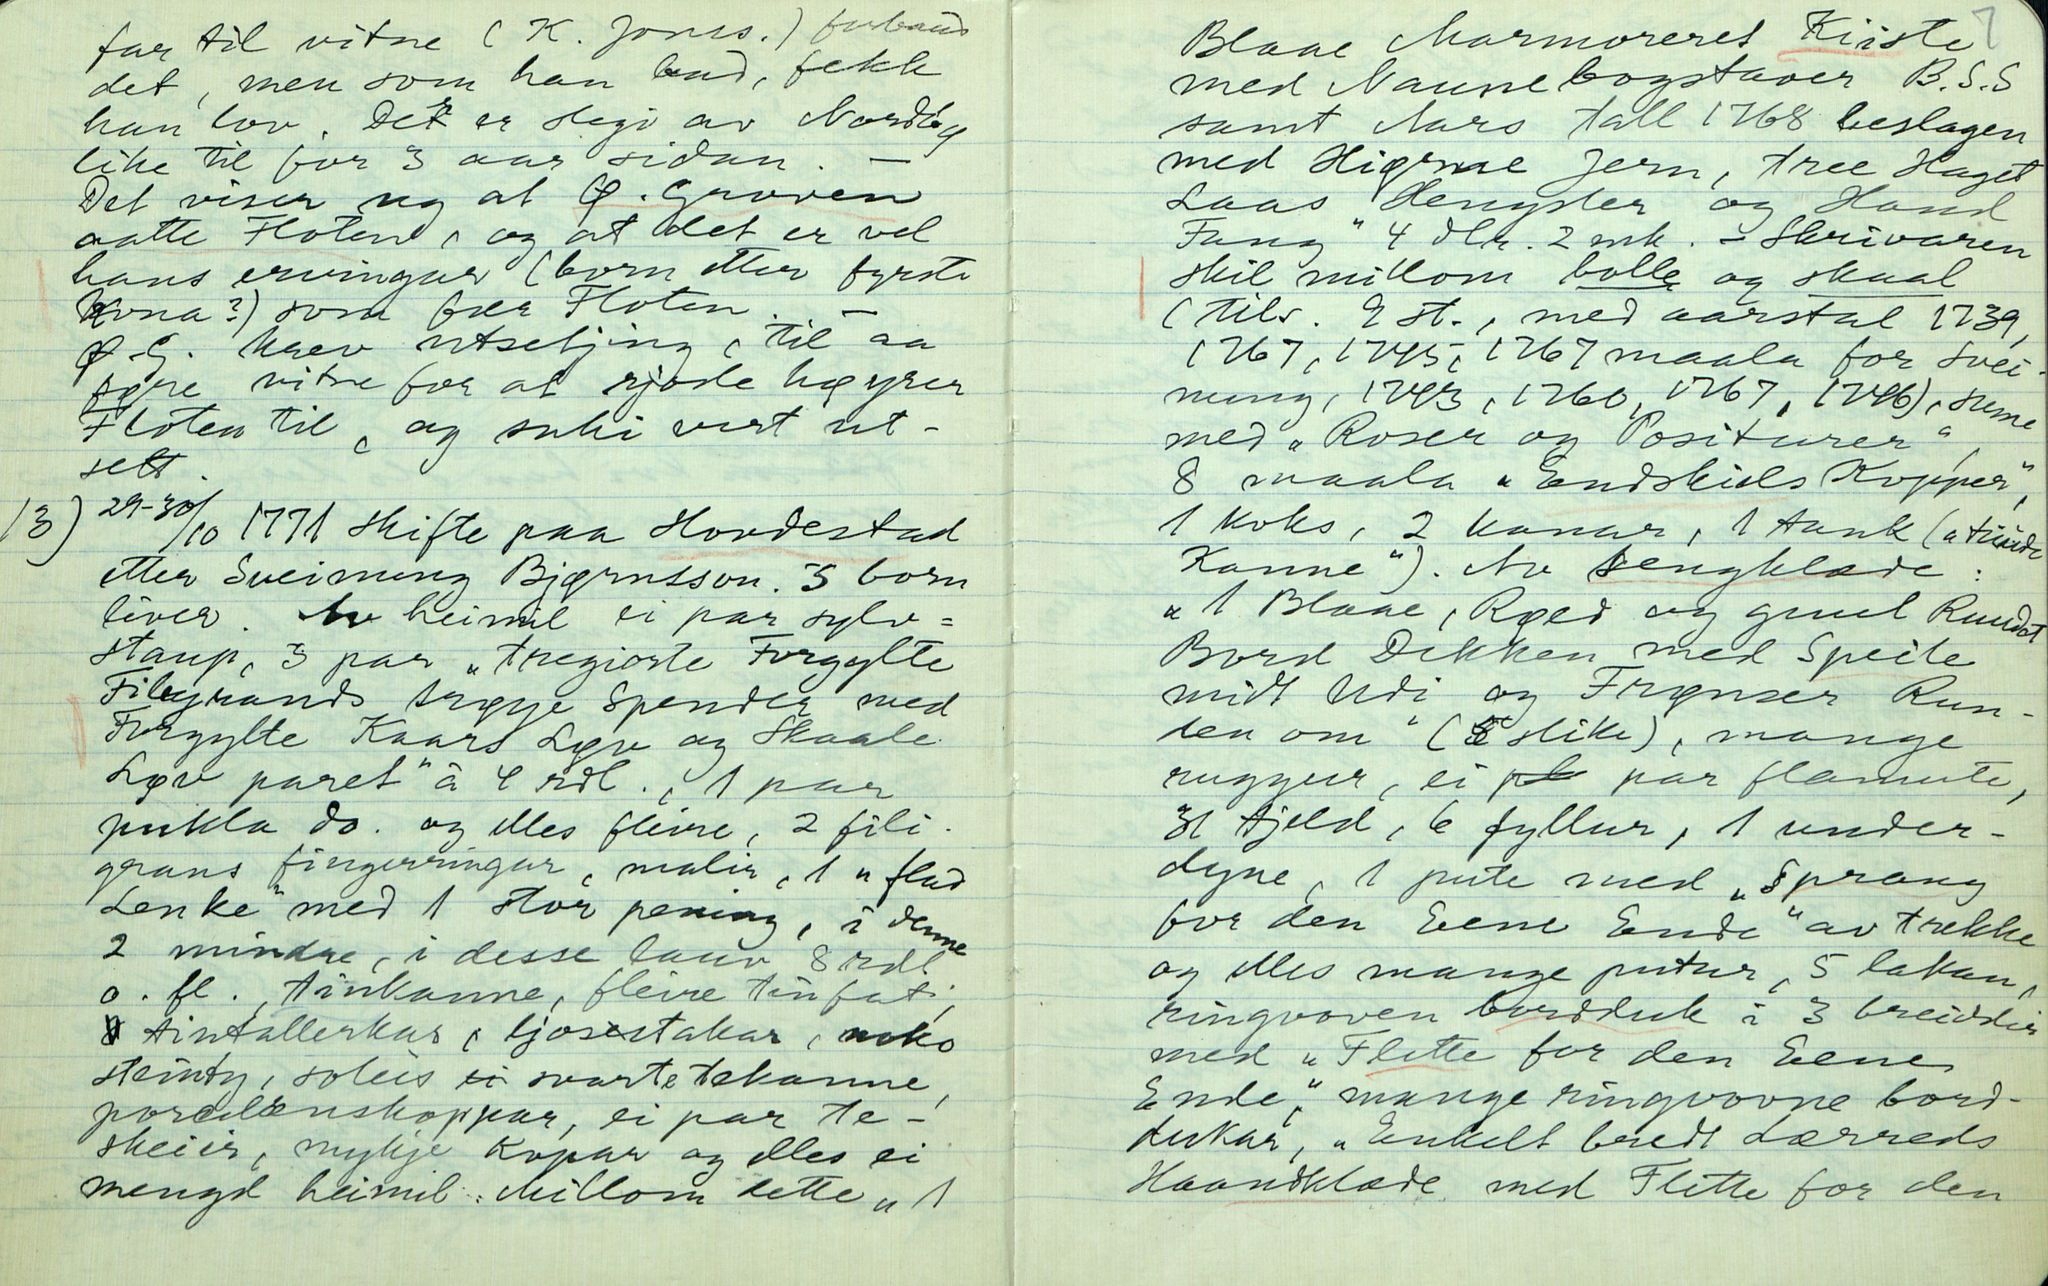 far til vitne (K. Jonss.) forbaud
det, men som han baud, fekk
han lov. Det er slegt av Nordbø
like til for 3 aar sidan. —
Det viser seg at Ø. Groven
aatte Floten, og at det er vel
hans ervingar (born etter fyrste
kona?) som fær Floten. —
Ø. G. krev utsetjing, til aa
føre vitne for at rjode høyrer
Floten til, og saki vert ut-
sett.
13) 29-30/10 1771 skifte paa Hovdestad
etter Sveinung Bjørnsson. 5 born
liver. Av heimil ei par sylv-
staup, 3 par „tregiorte Forgylte
Filegrands trøye Spender med
Forgylte Kaars Løv og Skaale
Løv paret" à 4 rdl., 1 par
pukla do. og elles fleire, 2 fili-
grans fingerringar, malir, 1 „flad
Lenke" med 1 stor pening, i denne
2 mindre, i desse lauv 8 rdl
o. fl., tinkanne, fleire tinfat,
tintallerkar, ljosestakar, noko
steinty, soleis ei svart tekanne,
porcelænskoppar, ei par te-
skeier, mykje kopar og elles ei
mengd heimil. Millom dette „1
7
Blaae Marmoreret Kiiste
med Naune bogstaver B.S.S
samt Aars tall 1768 beslagen
med Hiørne Jern, tree Haget
Laas Hengsler og Hand
Fang" 4 dlr. 2 mk. – Skrivaren
skil millom bolle og skaal
(tils. 9 st., med aarstal 1739,
1767, 1745, 1767 maala for Svei-
nung, 1743, 1760, 1767, 1746), sume
med „Roser og Positurer",
8 maala „Endskiels Kopper",
1 koks, 2 kanar, 1 tank („tiinde
Kanne"). Av sengklæde:
„1 Blaae, Rød og guul Rundet
Bord Dekken med Speile
midt Udi og Frønser Run-
den om" (5 slike), mange
ruggur, ei par flamute,
31 tjeld, 6 fyllur, 1 under-
dyne, 1 pute med „Sprang
for den Eene Ende" av trekke
og elles mange putur, 5 lakan,
ringvoven bordduk i 3 breiddir
med „Flette for den Eene
Ende", mange ringvovne bord-
dukar, „Enkelt bredt Lærreds
Haandklæde med Flette for den